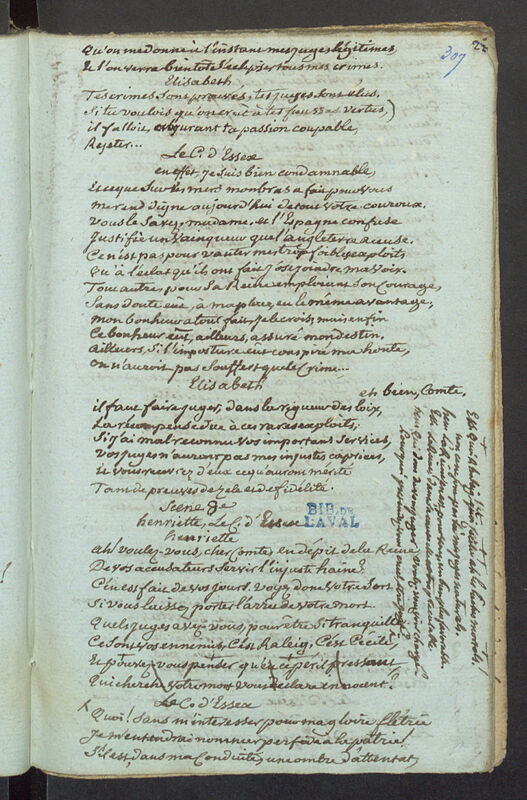 27
307
Qu'on me donne à l'instant mes juges légitimes
Et l'on verra bientôt s'éclipser tous mes crimes.
Elisabeth
Tes crimes sont prouvés, tes juges sont élus.
Si tu voulois qu'on crut à tes fausses vertus,
il falloit, abjurant ta passion coupable,
Rejeter...
Le C. d'Essex
en effet, je suis bien condamnable,
Et ce que sur les mers mon bras a fait pour vous
me rend digne aujourd'hui de tout votre couroux.
Vous le savez, madame, et l'Espagne confuse
Justifie un vainqueur que l'angleterre accuse.
Ce n'est pas pour vanter mes trop foibles exploits
Qu'à l'éclat qu'ils ont fait j'ose joindre ma voix.
Tout autre, pour sa Reine employant son courage,
Sans doute eut, à ma place, eu le même avantage,
mon bonheur a tout fait, je le crois; mais enfin
Ce bonheur eût, ailleurs, assuré mon destin.
ailleurs, si l'imposture eût conspiré ma honte,
on n'auroit pas souffert que le crime...
Elisabeth
eh bien, Comte,
il faut faire juger, dans la rigueur des loix,
La récompense due à ces rares exploits;
Si j'ai mal reconnu vos importans services,
Vos juges n'auront pas mes injustes caprices,
Et vous recevrez d'eux ce qu'auront mérité
Tant de preuves de zele et de fidélité.
Scene 8e
henriette, Le C. d'Essex
BIB. DE
LAVAL
henriette
ah! voulez-vous, cher Comte, en dépit de la Reine
De vos accusateurs servir l'injuste haine?
C'en est fait de vos jours. Voyez donc votre sort
Si vous laissez porter l'arrêt de votre mort.
Quels juges avez-vous, pour être si tranquille
Ce sont vos ennemis, C'est Raleig, C'est Cécile,
Et pouvez-vous penser qu'en ce péril pressant
Qui cherche votre mort vous déclare innocent.
Le C. d'Essex
Quoi! sans m'intéresser pour ma gloire flétrie
Je m'entendrai nommer perfide à la patrie!
S'il est, dans ma conduite, une ombre d'attentat,